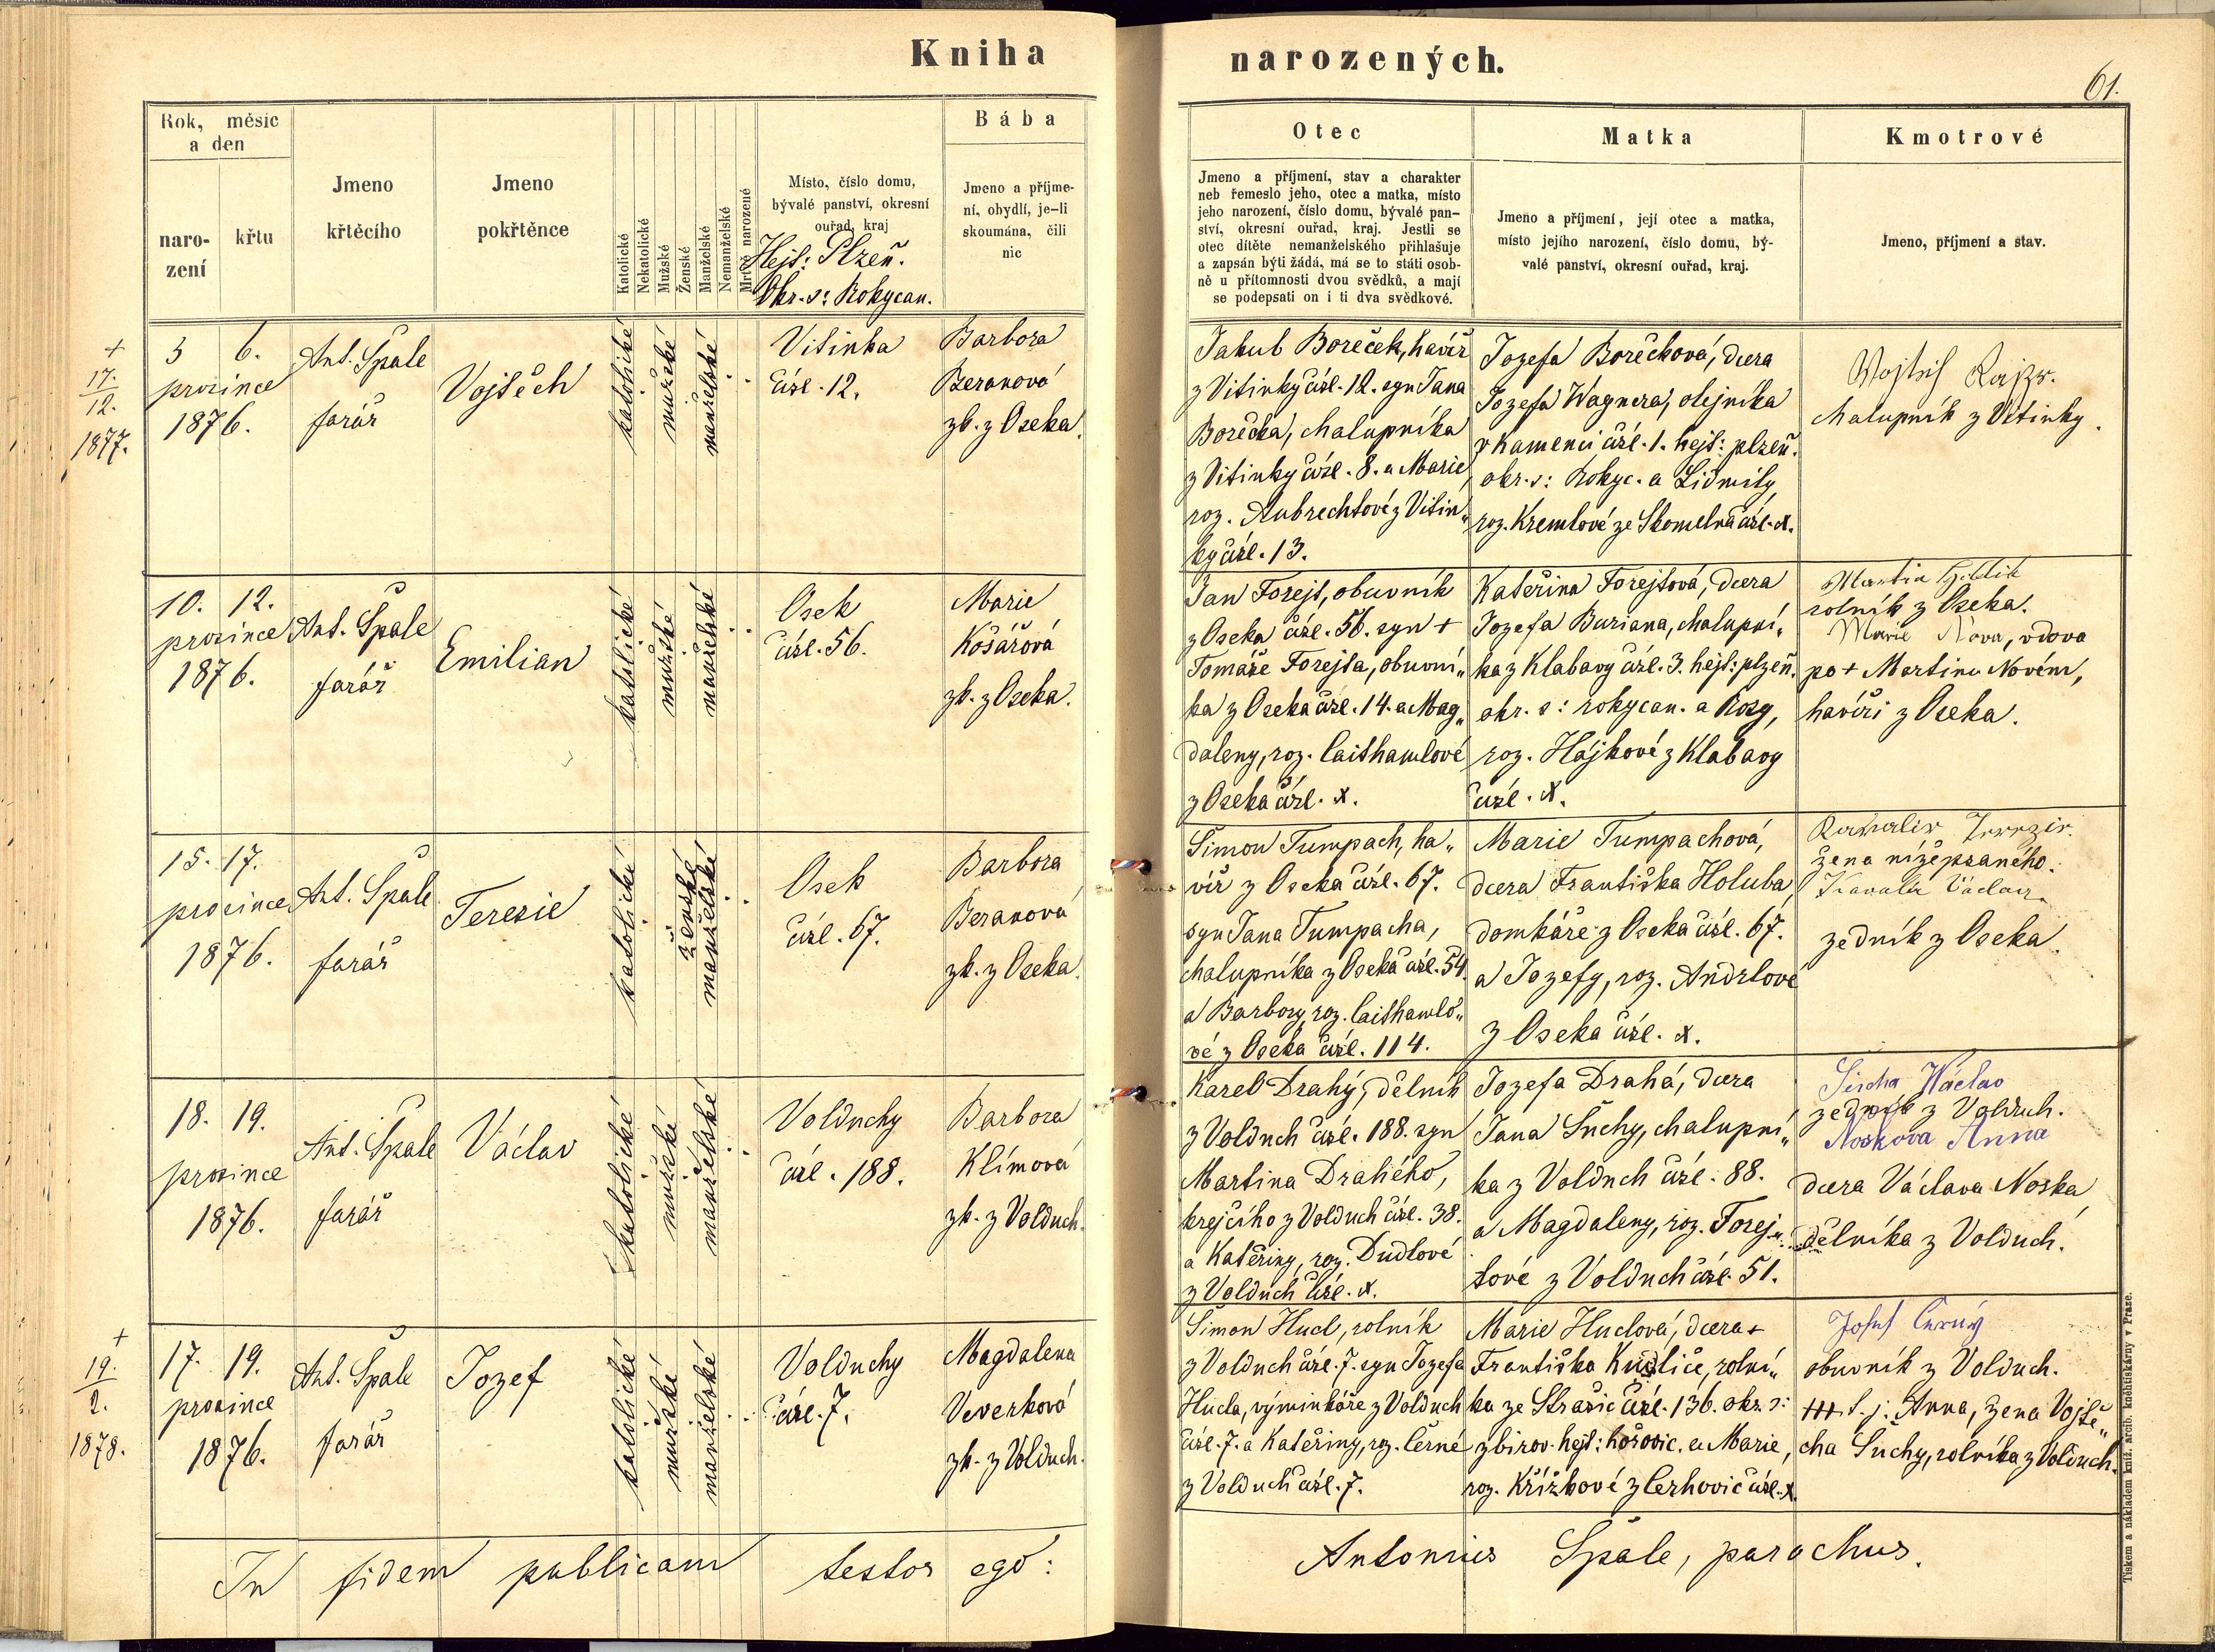 Kniha narozených.
61.
Rok, měsíc
a den
naro-
zení
křtu
Jmeno
křtěcího
Jmeno
pokřtěnce
Katolické
Nekatolické
Mužské
Ženské
Manželské
Nemanželské
Mrtvě narozené
Místo, číslo domu,
bývalé panství, okresní
ouřad, kraj
Hejt: Plzeň.
Okr. s: Rokycan.
Bába
Jmeno a příjme-
ní, obydlí, je-li
skoumána, čili
nic
Otec
Jmeno a příjmení, stav a charakter
neb řemeslo jeho, otec a matka, místo
jeho narození, číslo domu, bývalé pan-
ství, okresní ouřad, kraj. Jestli se
otec dítěte nemanželského přihlašuje
a zapsán býti žádá, má se to státi osob-
ně u přítomnosti dvou svědků, a mají
se podepsati on i ti dva svědkové.
Matka
Jmeno a příjmení, její otec a matka,
místo jejího narození, číslo domu, bý-
valé panství, okresní ouřad, kraj.
Kmotrové
Jmeno, příjmení a stav.
+
17.
12.
1877.
5 6.
prosince
1876.
Ant. Špale
farář
Vojtěch
katolické
mužské
manželské
Vitinka
čísl. 12.
Barbora
Beranová
zk. z Oseka.
Jakub Boreček, havíř
z Vitinky čísl. 12. syn Jana
Borečka, chalupníka
z Vitinky čísl. 8. a Marie,
roz. Aubrechtové z Vitin„
ky čísl. 13.
Jozefa Borečková, dcera
Jozefa Wagnera, olejníka
v Kamenci čísl. 1. hejt: plzeň.
okr. s: Rokyc. a Lidmily
roz. Kremlové ze Skomelna čísl. x.
chalupník z Vitinky.
10. 12.
prosince
1876.
Ant. Špale
farář
Emilian
katolické
mužské
manželské
Osek
čísl. 56.
Marie
Košařová
zk. z Oseka.
Jan Forejt, obuvník
z Oseka čísl. 56. syn +
Tomáše Forejta, obuvní„
ka z Oseka čísl. 14. a Mag„
daleny, roz. Caithamlové
z Oseka čísl. x.
Kateřina Forejtová, dcera
Jozefa Buriana, chalupní„
ka z Klabavy čísl. 3. hejt: plzeň.
okr. s: rokycan. a Rosy,
roz. Hájkové z Klabavy
čísl. x.
Martin
rolník z Oseka.
Marie Nova, vdova
po + Martinu Novém,
havíři z Oseka.
15. 17.
prosince
1876.
Ant. Špale
farář
Teresie
katolické
ženské
manželské
Osek
čísl. 67.
Barbora
Beranová
zk. z Oseka.
Šimon Tumpach, ha„
víř z Oseka čísl. 67.
syn Jana Tumpacha,
chalupníka z Oseka čísl. 54
a Barbory, roz. Caithamlo„
vé z Oseka čísl. 114.
Marie Tumpachová,
dcera Františka Holuba
domkáře z Oseka čísl. 67.
a Jozefy, roz. Andrlové
z Oseka čísl. x.
žena nížepsaného.
Václav
zedník z Oseka.
18. 19.
prosince
1876.
Ant. Špale
farář
Václav
katolické
mužské
manželské
Volduchy
čísl. 188.
Barbora
Klímová
zk. z Volduch.
Karel Drahý, dělník
z Volduch čísl. 188. syn
Martina Drahého,
krejčího z Volduch čísl. 38.
a Kateřiny, roz. Dudlové
z Volduch čísl. x.
Jozefa Drahá, dcera
Jana Suchy, chalupní„
ka z Volduch čísl. 88.
a Magdaleny, roz. Forej„
tové z Volduch čísl. 51.
Václav
zedník z Volduch.
Noskova Anna
dcera Václava Noska,
dělníka z Volduch.
+
19.
2.
1878.
17. 19.
prosince
1876.
Ant. Špale
farář
Jozef
katolické
mužské
manželské
Volduchy
čísl. 7.
Magdalena
Veverková
zk. z Volduch.
Šimon Hucl, rolník
z Volduch čísl. 7. syn Jozefa
Hucla, výminkáře z Volduch
čísl. 7. a Kateřiny, roz. Černé
z Volduch čísl. 7.
Marie Huclová, dcera +
Františka Kudliče, rolní„
ka ze Strašic čísl. 136. okr. s:
zbirov. hejt: hořovic. a Marie,
roz. Křížkové z Cerhovic čísl. x.
Josef Černý
obuvník z Volduch.
+++ t. j: Anna, žena Vojtě„
cha Suchy, rolníka z Volduch.
In fidem publicam testor ego: Antonius Špale, parochus.
Tiskem a nákladem kníž. arcib. knihtiskárny v Praze.